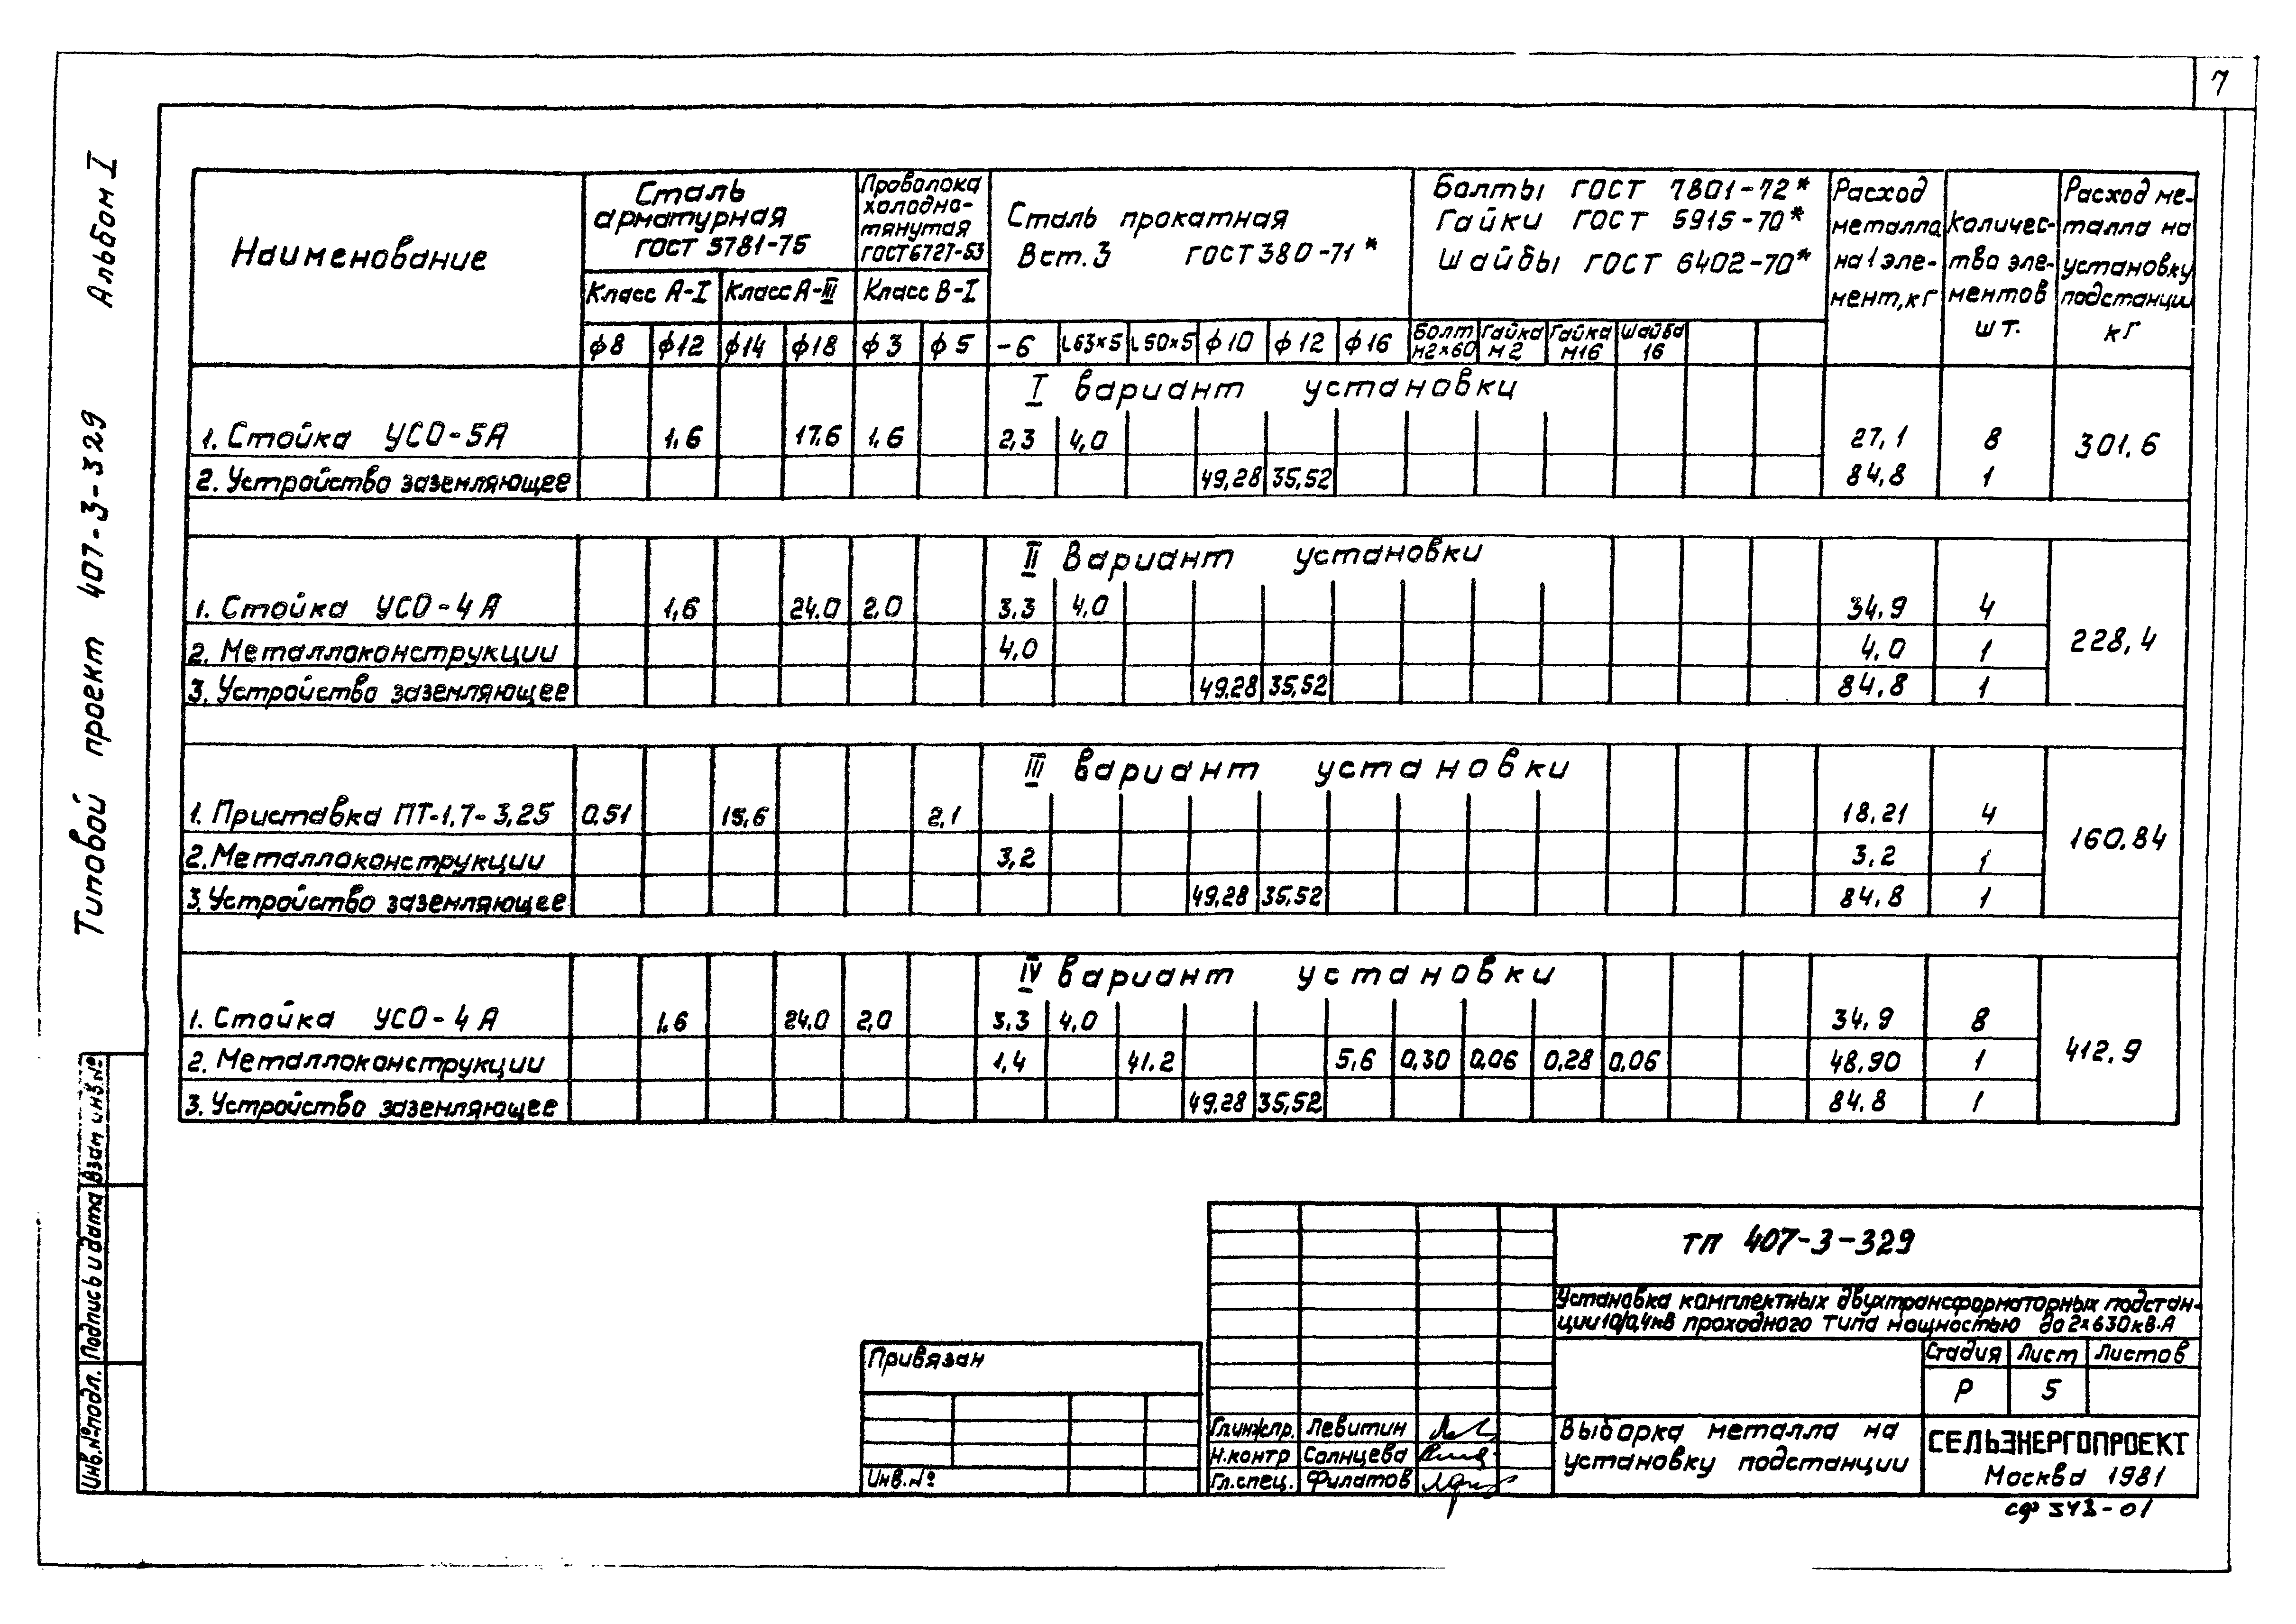 7
Альбом I
Типовой проект 407-3-329
Наименование
Сталь арматурная ГОСТ 5781-75
Проволока холодно-тянутая ГОСТ 6727-53
Сталь прокатная
Вст.3 ГОСТ 380-71*
Болты ГОСТ 7801-72*
Гайки ГОСТ 5915-70*
Шайбы ГОСТ 6402-70*
Расход металла на 1 эле-мент, кг
Количес-тво эле-ментов шт.
Расход ме-талла на установку подстанции кг
Класс А-I Класс А-III Класс В-I
ф8 ф12 ф14 ф18 ф3 ф5 -6 L63×5 L50×5 ф10 ф12 ф16 Болт М2×60 Гайка М2 Гайка М16 Шайба 16
I вариант установки
1. Стойка УСО-5А 1,6 17,6 1,6 2,3 4,0 27,1 8 301,6
2. Устройство заземляющее 49,28 35,52 84,8 1
II вариант установки
1. Стойка УСО-4А 1,6 24.0 2,0 3,3 4,0 34,9 4
2. Металлоконструкции 4,0 4,0 1 228,4
3. Устройство заземляющее 49.28 35,52 84,8 1
III вариант установки
1. Приставка ПТ-1,7-3,25 0.51 15,6 2,1 18,21 4
2. Металлоконструкции 3,2 3,2 1 160.84
3. Устройство заземляющее 49,28 35,52 84,8 1
IV вариант установки
1. Стойка УСО-4А 1,6 24,0 2,0 3,3 4,0 34,9 8
2. Металлоконструкции 1,4 41.2 5,6 0,30 0,06 0,28 0,06 48,90 1 412,9
3. Устройство заземляющее 49,28 35,52 84.8 1
Взам инв.№
Подпись и дата
Инв.№подл.
Привязан
Инв.№
ТП 407-3-329
Установка комплектных двухтрансформаторных подстан-
ции 10/0,4кв проходного типа мощностью до 2×630кв.А
Стадия Лист Листов
Р 5
Гл.инж.пр. Левитин
Н.контр Солнцева
Гл.спец. Филатов
Выборка металла на
установку подстанции
СЕЛЬЭНЕРГОПРОЕКТ
Москва 1981
сф 343-01